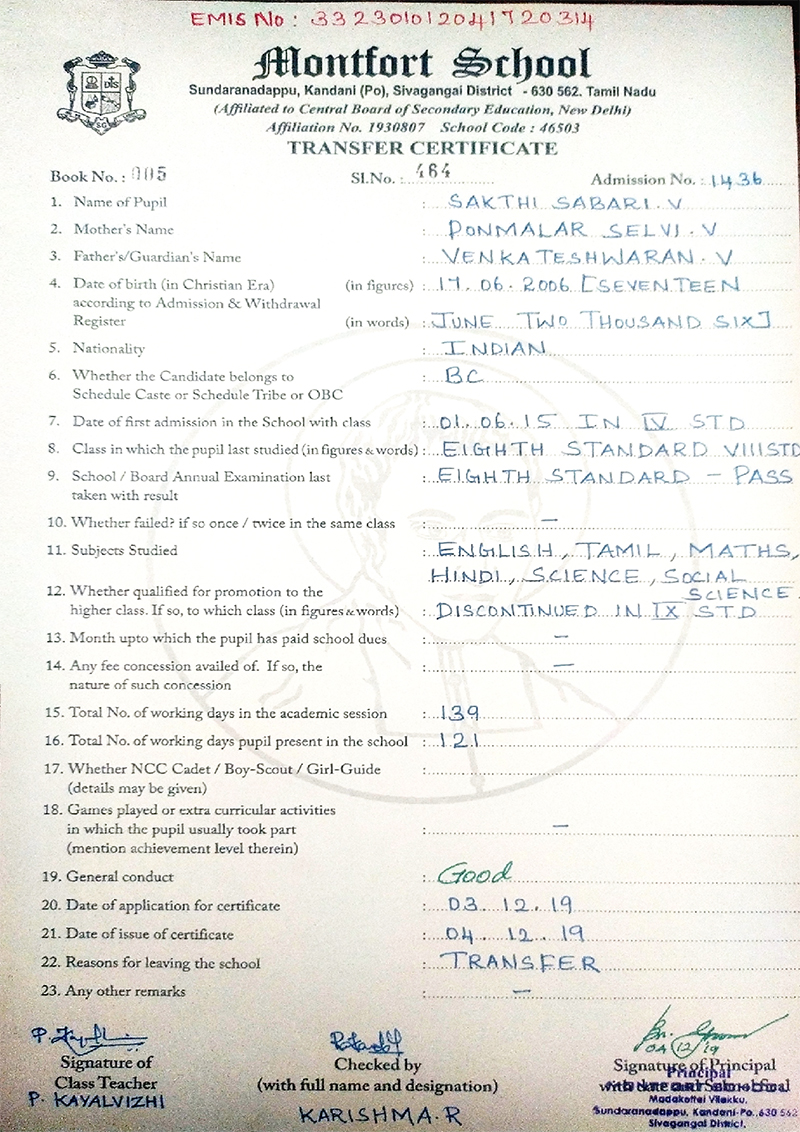 EMIS No : 332301012041720314
Montfort School
Sundaranadappu, Kandani (Po), Sivagangai District - 630 562. Tamil Nadu
(Affiliated to Central Board of Secondary Education, New Delhi)
Affiliation No. 1930807 School Code : 46503
TRANSFER CERTIFICATE
Book No. : 005 Sl.No. : 464 Admission No. : 1436
1. Name of Pupil : SAKTHI SABARI.V
2. Mother's Name : PONMALAR SELVI.V
3. Father's/Guardian's Name : VENKATESHWARAN.V
4. Date of birth (in Christian Era) (in figures) : 17.06.2006 [SEVENTEEN
according to Admission & Withdrawal
Register (in words) : JUNE TWO THOUSAND SIX]
5. Nationality : INDIAN
6. Whether the Candidate belongs to : BC
Schedule Caste or Schedule Tribe or OBC
7. Date of first admission in the School with class : 01.06.15 IN IV STD
8. Class in which the pupil last studied (in figures & words) : EIGHTH STANDARD VIII STD
9. School / Board Annual Examination last : EIGHTH STANDARD - PASS
taken with result
10. Whether failed? if so once / twice in the same class : —
11. Subjects Studied : ENGLISH, TAMIL, MATHS,
HINDI, SCIENCE, SOCIAL
SCIENCE.
12. Whether qualified for promotion to the
higher class. If so, to which class (in figures & words) : DISCONTINUED IN IX STD
13. Month upto which the pupil has paid school dues : —
14. Any fee concession availed of. If so, the : —
nature of such concession
15. Total No. of working days in the academic session : 139
16. Total No. of working days pupil present in the school : 121
17. Whether NCC Cadet / Boy-Scout / Girl-Guide :
(details may be given)
18. Games played or extra curricular activities
in which the pupil usually took part : —
(mention achievement level therein)
19. General conduct : Good
20. Date of application for certificate : 03.12.19
21. Date of issue of certificate : 04.12.19
22. Reasons for leaving the school : TRANSFER
23. Any other remarks : —
04/12/19
Signature of Checked by Signature of Principal
Class Teacher (with full name and designation)
P. KAYALVIZHI KARISHMA.R
Principal
Madakottai Vilakku,
Sundaranadappu, Kandani-Po.,630 562
Sivagangai District.